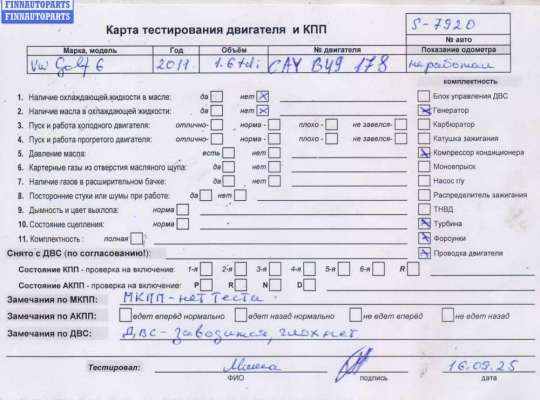 FINNAUTOPARTS
FINNAUTOPARTS
Карта тестирования двигателя и КПП
S-7920
№ авто
Марка, модель Год Объём № двигателя Показание одометра
VW Golf 6 2011 1.6 tdi CAY B49 178 не работает
комплектность
1. Наличие охлаждающей жидкости в масле: да нет Блок управления ДВС
2. Наличие масла в охлаждающей жидкости: да нет Генератор
3. Пуск и работа холодного двигателя: отлично- норма - плохо - не завелся- Карбюратор
4. Пуск и работа прогретого двигателя: отлично- норма - плохо - не завелся- Катушка зажигания
5. Давление масла: есть нет Компрессор кондиционера
6. Картерные газы из отверстия масляного щупа: да нет Моновпрыск
7. Наличие газов в расширительном бачке: да нет Насос г/у
8. Посторонние стуки или шумы при работе: да нет Распределитель зажигания
9. Дымность и цвет выхлопа: норма ТНВД
10. Состояние сцепления: норма Турбина
11. Комплектность : полная Форсунки
Снято с ДВС (по согласованию!): Проводка двигателя
Состояние КПП - проверка на включение: 1-я 2-я 3-я 4-я 5-я 6-я R-
Состояние АКПП - проверка на включение: P R N D
Замечания по МКПП: МКПП - нет теста
Замечания по АКПП: едет вперёд нормально едет назад нормально не едет вперёд не едет назад
Замечания по ДВС: ДВС - заводится, глохнет.
Тестировал: 16.09.25
ФИО подпись дата